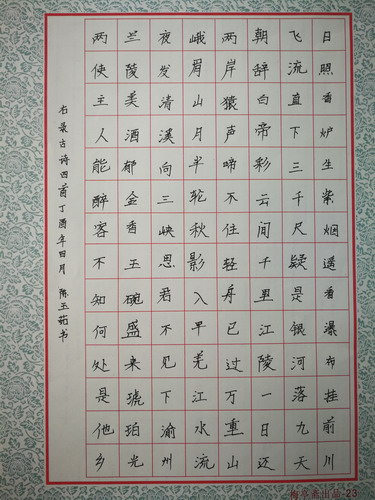 日照香炉生紫烟遥看瀑布挂前川
飞流直下三千尺疑是银河落九天
朝辞白帝彩云间千里江陵一日还
两岸猿声啼不住轻舟已过万重山
峨眉山月半轮秋影入早羌江水流
夜发清溪向三峡思君不见下渝州
兰陵美酒郁金香玉碗盛来琥珀光
两使主人能醉客不知何处是他乡
右录古诗四首丁酉年四月 陈玉茹书
出品-23